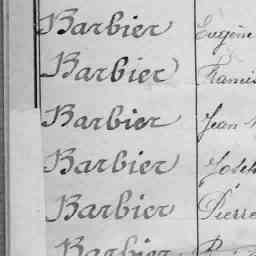 Barbier Eugène
Barbier Francis
Barbier Jean
Barbier Joseph
Barbier Pierre
Barbier